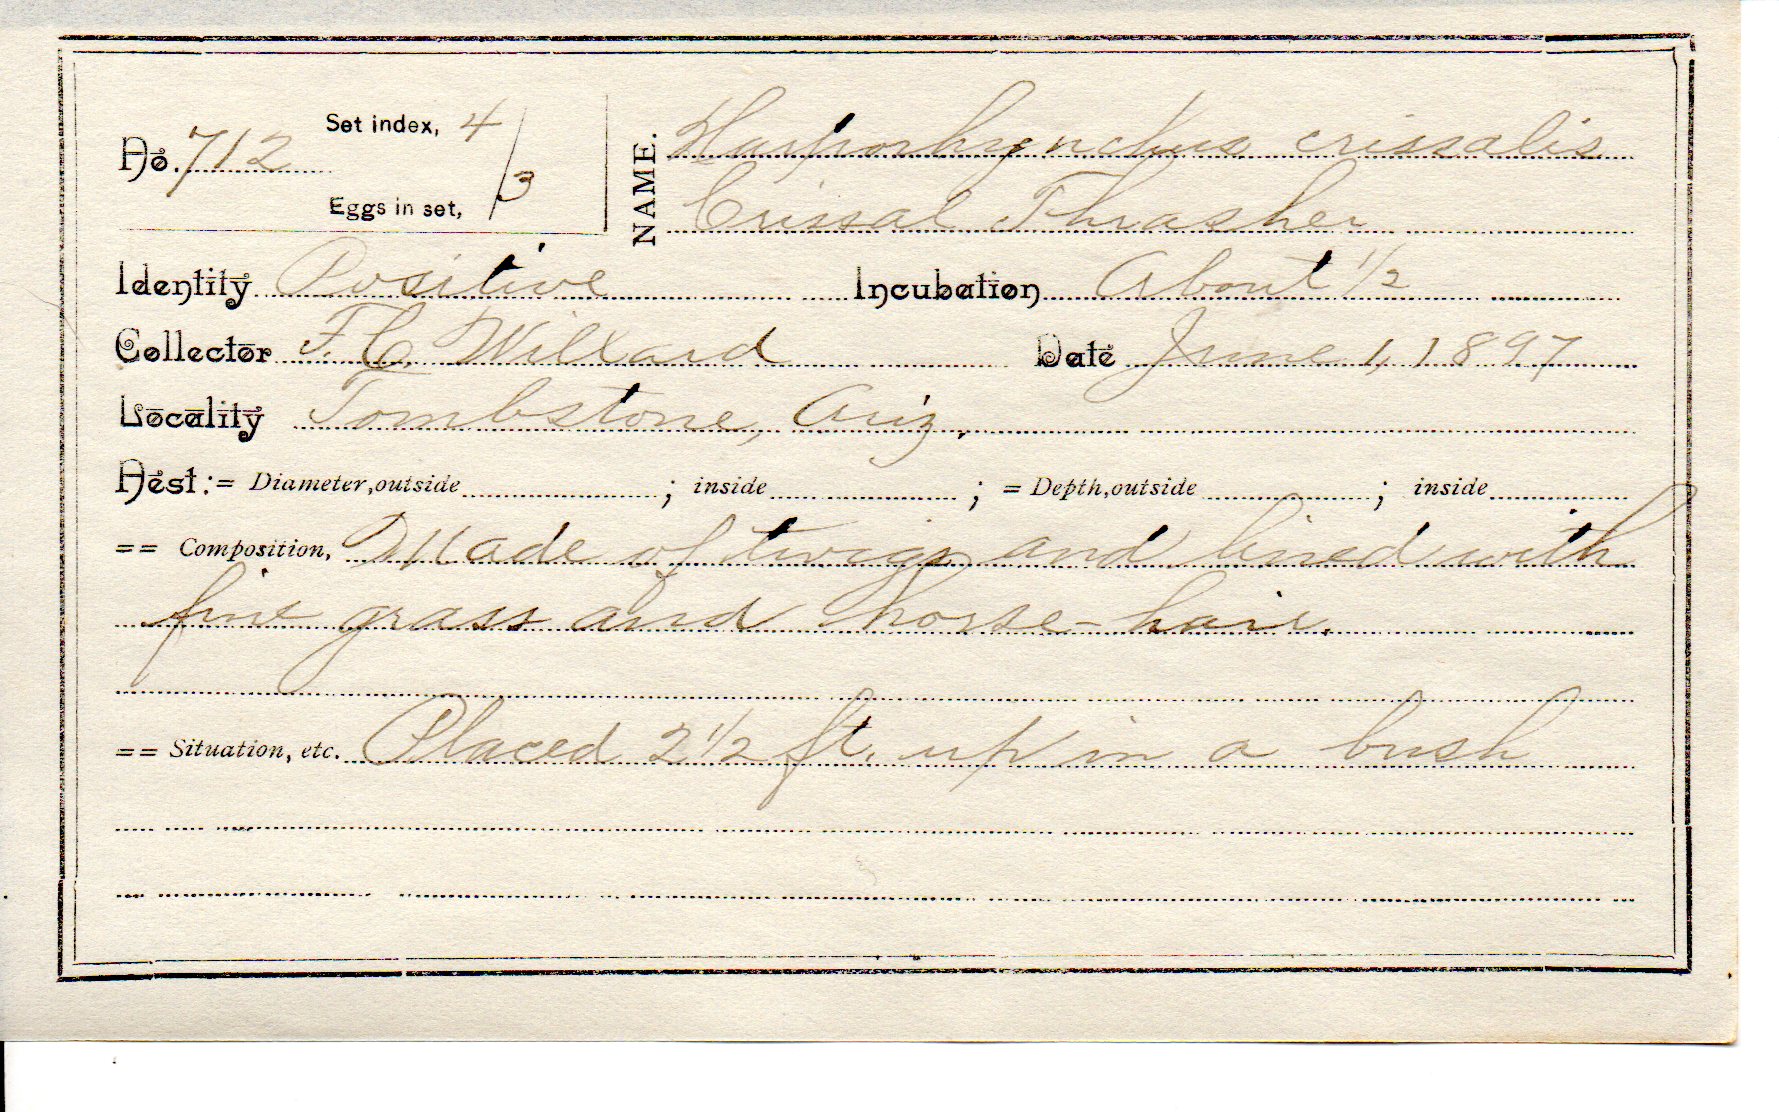 No. 712 Set index, 4 / Eggs in set, 3
NAME. Harporhynchus crissalis
Crissal Thrasher
Identity Positive Incubation About 1/2
Collector F. C. Willard Date June 1, 1897
Locality Tombstone, Ariz.
Nest:= Diameter, outside ; inside ; = Depth, outside ; inside
== Composition, Made of twigs and lined with
fine grass and horse-hair.
== Situation, etc. Placed 2 1/2 ft. up in a bush